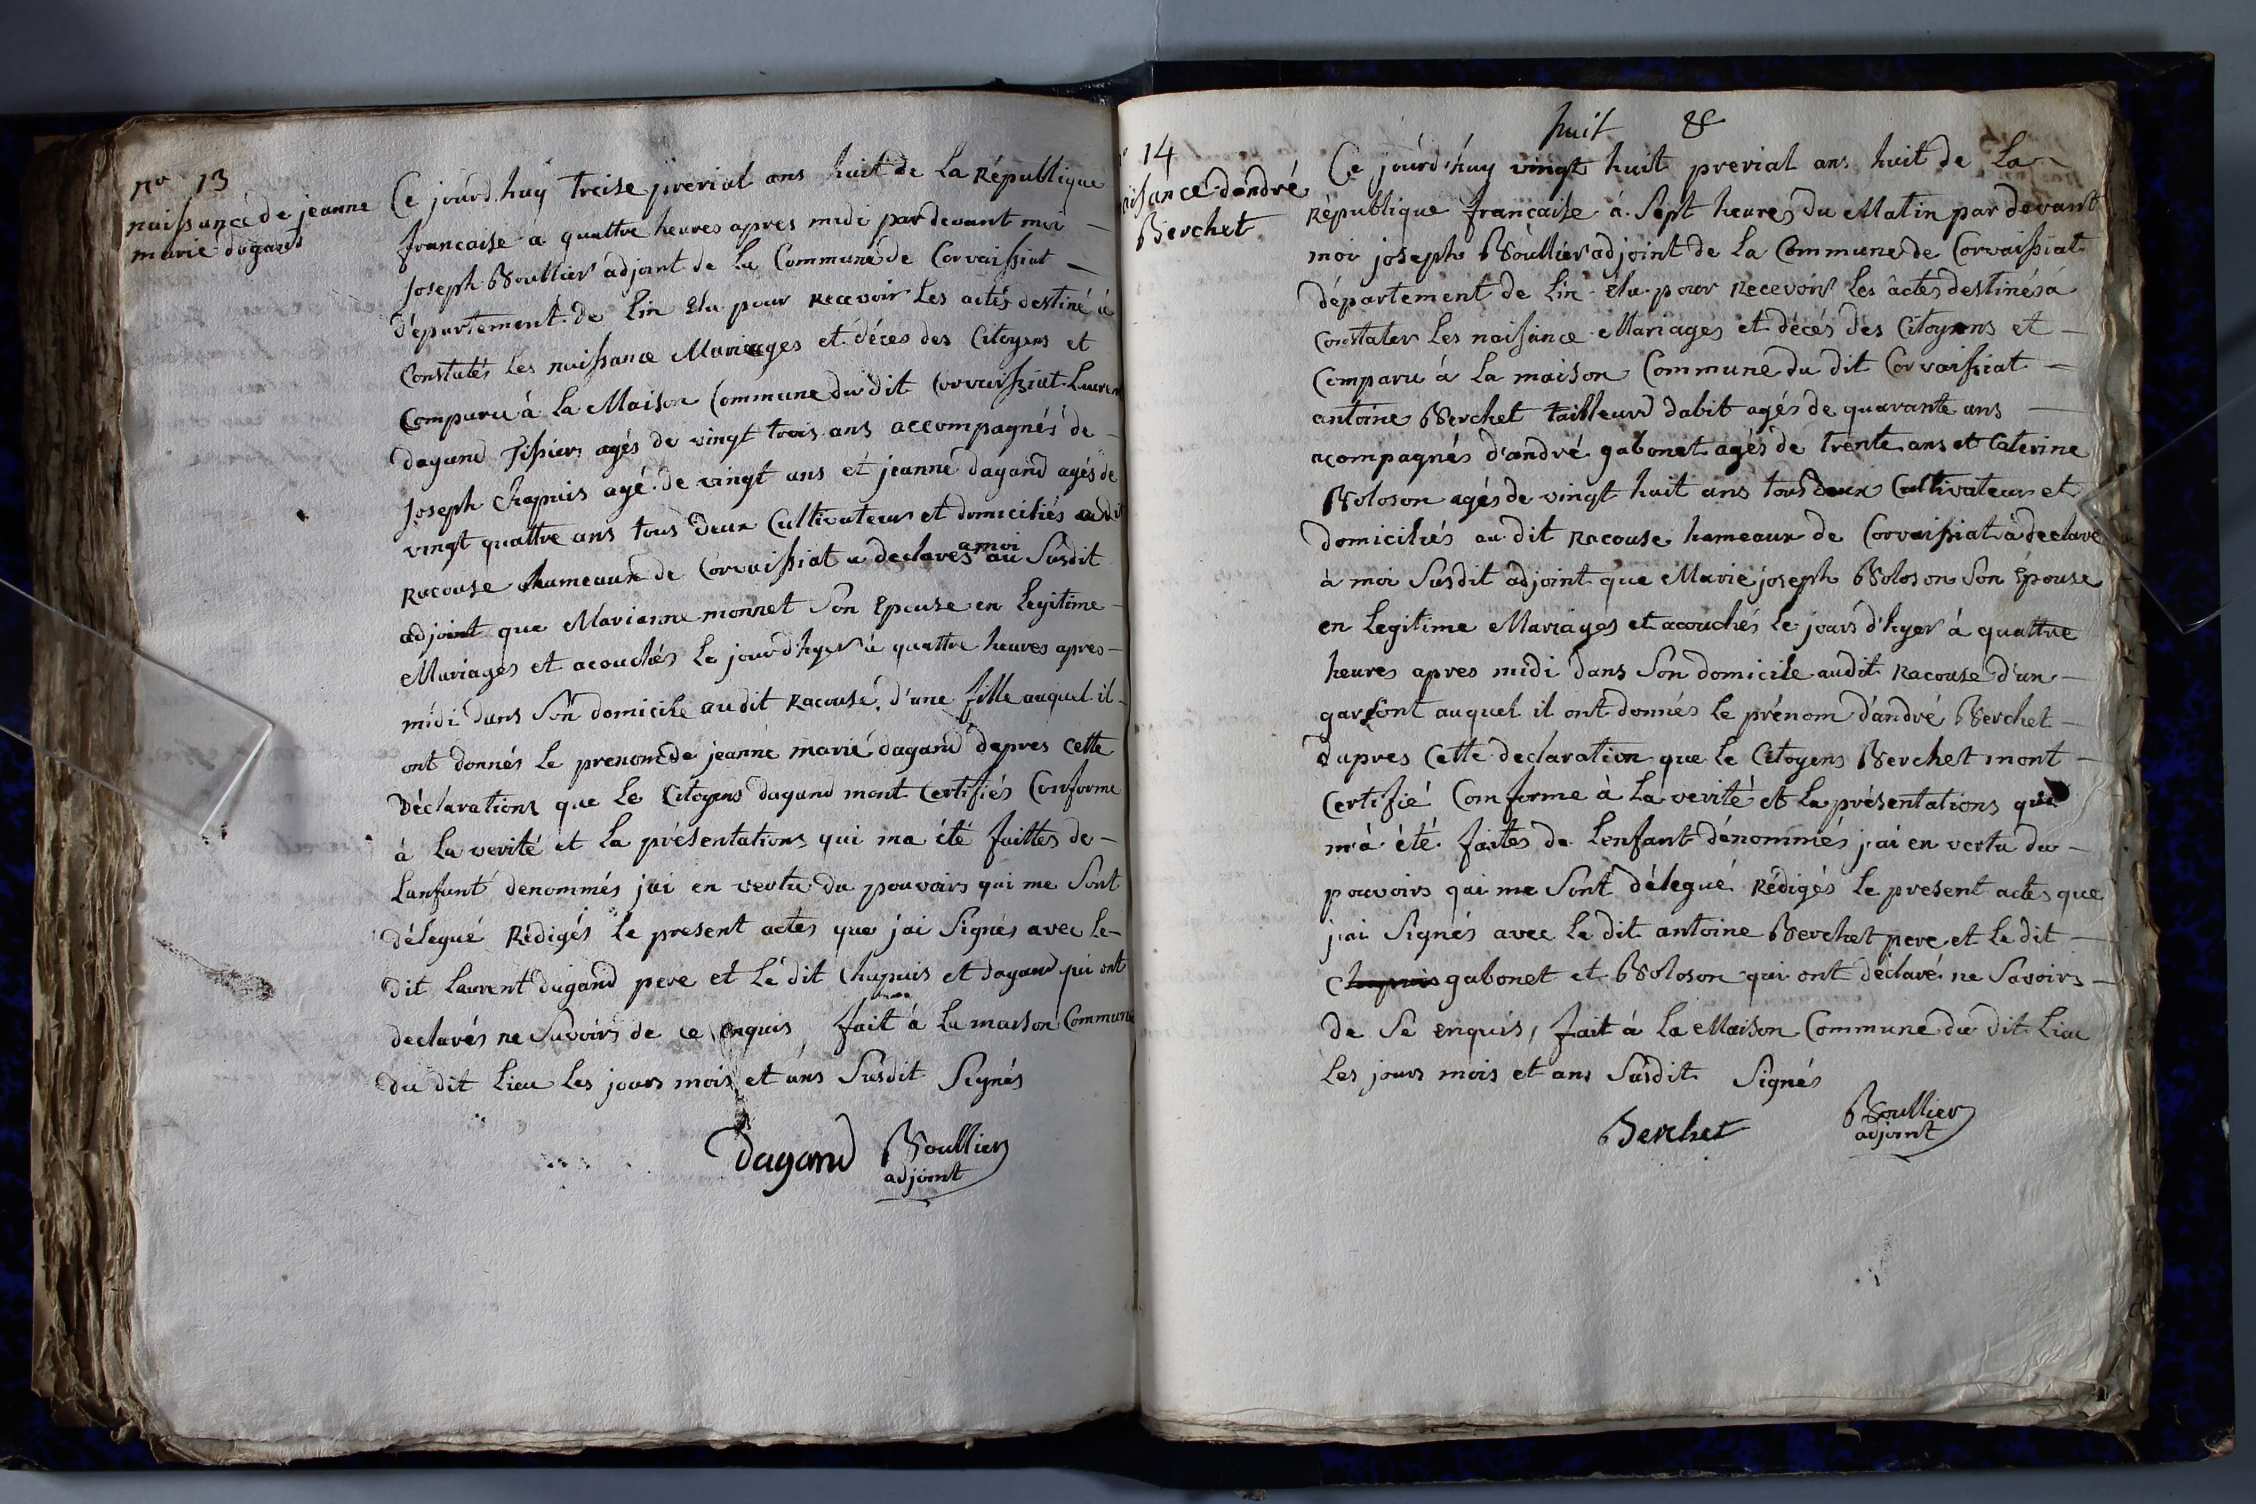 no 13
naissance de jeanne
marie dagand
Ce jourd'huy treise prerial ans huit de La République
francaise a quattre heures apres midi par devant moi
joseph Boullier adjoint de La Commune de Corvaissiat
département de Lin Elu pour Recevoir Les actés destiné à
Constatés Les naissance Mariages et décés des Citoyens et
Comparu à La Maison Commune du dit Corvaissiat Laurent
dagand Tissier agés de vingt trois ans accompagnés de
joseph Chapuis agé de vingt ans et jeanne dagand agés de
vingt quattre ans tous deux Cultivateur et domiciliés audit
Racouse hameaux de Corvaissiat a declares amoi au Susdit
adjoint que Marianne monnet Son Epouse en Legitime
Mariages et acouchés Le jour d'hyer à quattre heures apres
midi dans Son domicile audit Racouse, d'une fille auquel il
ont donnés Le prenom de jeanne marie dagand dapres Cette
Déclarations que Le Citoyens dagand mont Certifiés Conforme
à La verité et La présentations qui ma été faittes de
Lanfant denommés jai en vertu du pouvoirs qui me Sont
délegué Rédigés Le present actes que jai Signés avec Le
dit Laurent dagand pere et Le dit Chapuis et dagand qui ont
declarés ne Savoirs de ce enquis, fait à La maison Commune
du dit Lieu Les jours mois et ans Susdit Signés
Dagand Boullier
adjoint
huit 8
14
naissance d'andré
Berchet
Ce jourd'huy vingt huit prerial ans huit de La
République française à Sept heures du Matin par devant
moi joseph Boullier adjoint de La Commune de Corvaissiat
département de Lin Elu pour Recevoir Les actes destinés à
Constater Les naissance Mariages et décés des Citoyens et
Comparu à La maison Commune du dit Corvaissiat
antoine Berchet tailleur dabit agés de quarante ans
acompagnés d'andré gabonet agés de trente ans et Caterine
Boloson agés de vingt huit ans tous deux Cultivateur et
domiciliés au dit Racouse hameaux de Corvaissiat à declare
à moi Susdit adjoint que Marie joseph Boloson Son Epouse
en Legitime Mariages et acouchés Le jours d'hyer à quattre
heures apres midi dans Son domicile audit Racouse d'un
garsont auquel il ont donnés Le prénom d'andré Berchet
dapres Cette declaration que Le Citoyens Berchet mont
Certifié Comforme à La verité et La présentations qui
m'à été faites de Lenfant dénommés j'ai en vertu du
pouvoirs qui me Sont délegué Rédigés Le present actes que
j'ai Signés avec Le dit antoine Berchet pere et Le dit
Chapuis gabonet et Boloson qui ont déclaré ne Savoirs
de Se enquis, fait à La Maison Commune du dit Lieu
Les jours mois et ans Susdit Signés
Berchet Boullier
adjoint